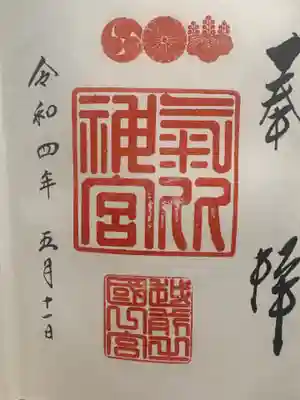 奉拝
氣比
神宮
越前
國一宮
令和四年 五月十一日